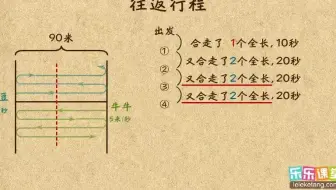 往返行程
90米
出发
① 合走了1个全长,10秒
② 又合走了2个全长,20秒
③ 又合走了2个全长,20秒
④ 又合走了2个全长,20秒
豆
秒
牛牛
5米/秒
乐乐课堂
leleketang.com